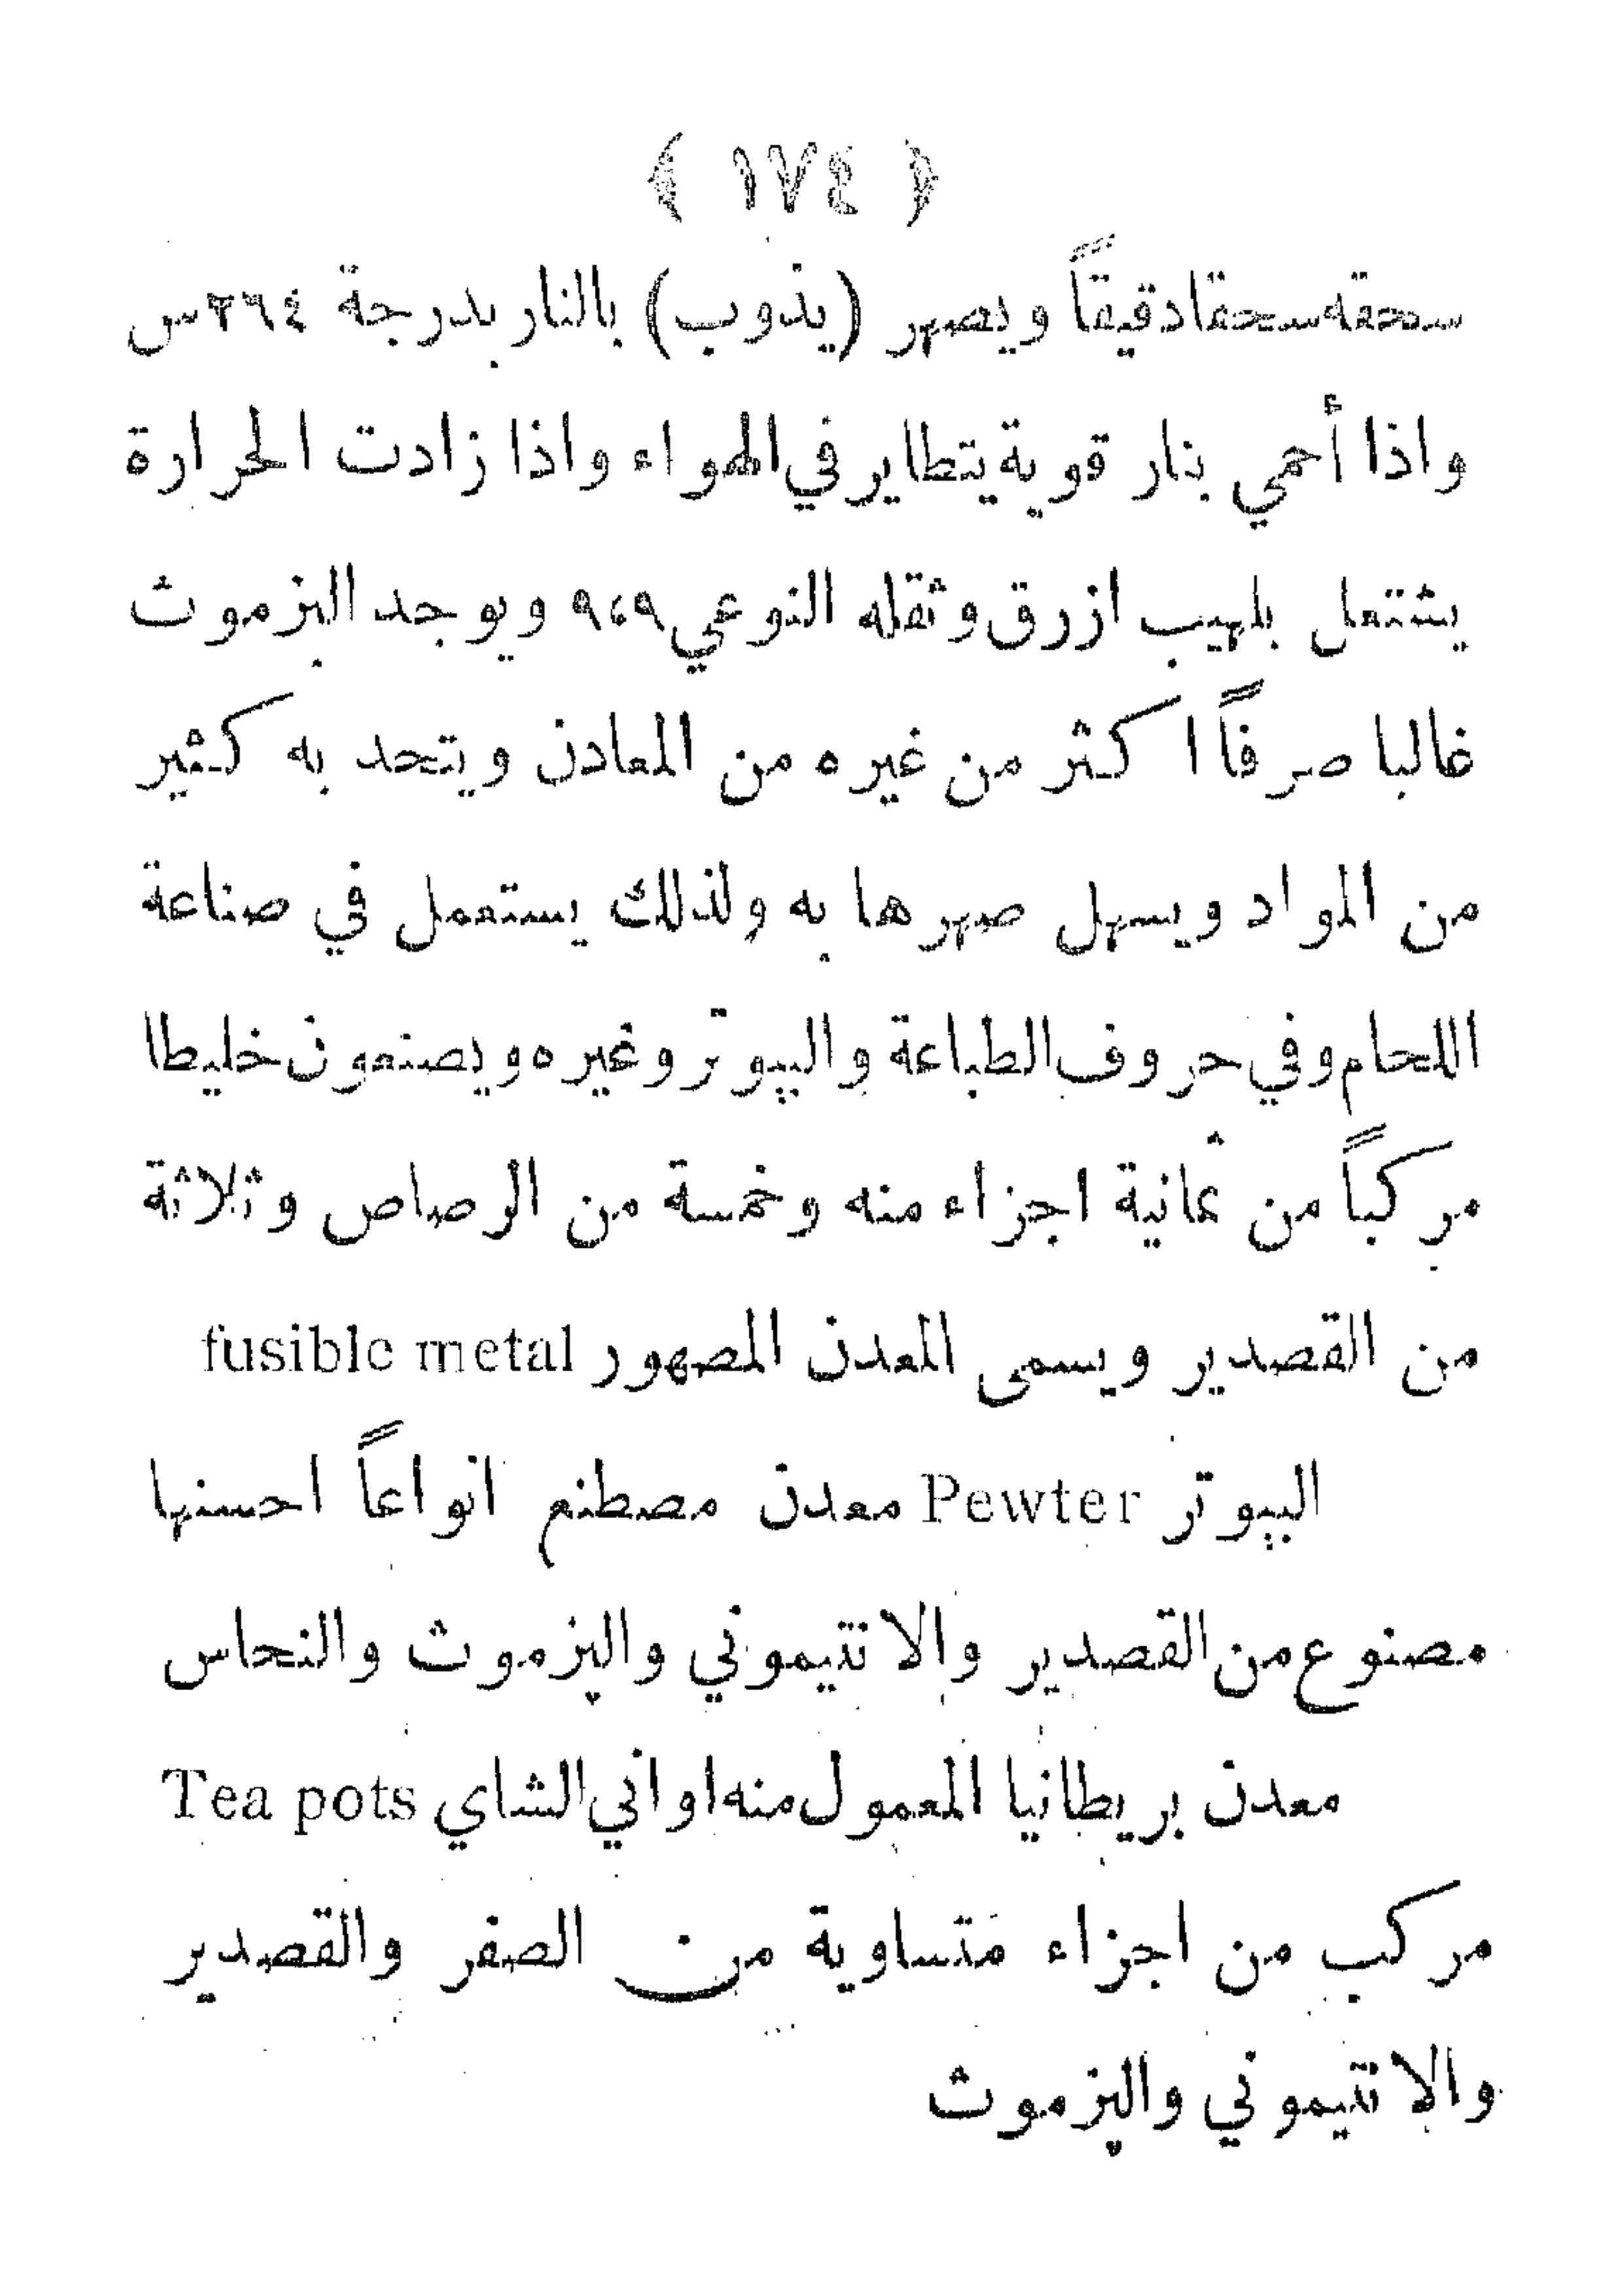 ﴿ ١٧٤ ﴾
سحقه سحقا دقيقاً ويصهر (يذوب) بالنار بدرجة ٢٦٤س
واذا أحمي بنار قوية يتطاير في الهواء واذا زادت الحرارة
يشتعل بلهيب ازرق وثقله النوعي ٩،٩ ويوجد البزموث
غالبا صرفاً اكثر من غيره من المعادن ويتحد به كثير
من المواد ويسهل صهرها به ولذلك يستعمل في صناعة
اللحام وفي حروف الطباعة والپيوتر وغيره ويصنعون خليطا
مركباً من ثمانية اجزاء منه وخمسة من الرصاص وثلاثة
من القصدير ويسمى المعدن المصهور fusible metal
الپيوتر Pewter معدن مصطنع انواعاً احسنها
مصنوع من القصدير والانتيموني والبزموث والنحاس
معدن بريطانيا المعمول منه اواني الشاي Tea pots
مركب من اجزاء متساوية من الصفر والقصدير
والانتيموني والبزموث